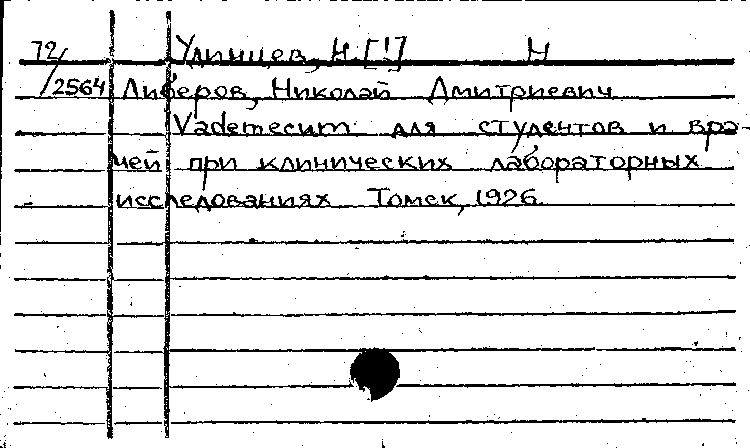 72/ Улинцев, Н. [!] Н
/2564 Либеров, Николай Дмитриевич
Vademecum для студентов и вра-
чей при клинических лабораторных
исследованиях Томск, 1926.